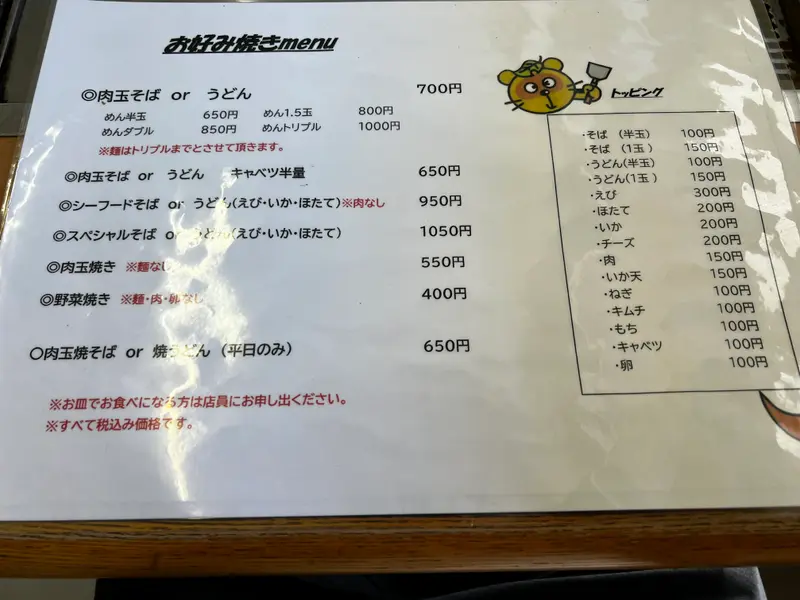 お好み焼きmenu
◎肉玉そば or うどん 700円
めん半玉 650円 めん1.5玉 800円
めんダブル 850円 めんトリプル 1000円
※麺はトリプルまでとさせて頂きます。
◎肉玉そば or うどん キャベツ半量 650円
◎シーフードそば or うどん(えび・いか・ほたて)※肉なし 950円
◎スペシャルそば or うどん(えび・いか・ほたて) 1050円
◎肉玉焼き ※麺なし 550円
◎野菜焼き ※麺・肉・卵なし 400円
〇肉玉焼そば or 焼うどん (平日のみ) 650円
※お皿でお食べになる方は店員にお申し出ください。
※すべて税込み価格です。
トッピング
・そば (半玉) 100円
・そば (1玉) 150円
・うどん(半玉) 100円
・うどん(1玉) 150円
・えび 300円
・ほたて 200円
・いか 200円
・チーズ 200円
・肉 150円
・いか天 150円
・ねぎ 100円
・キムチ 100円
・もち 100円
・キャベツ 100円
・卵 100円